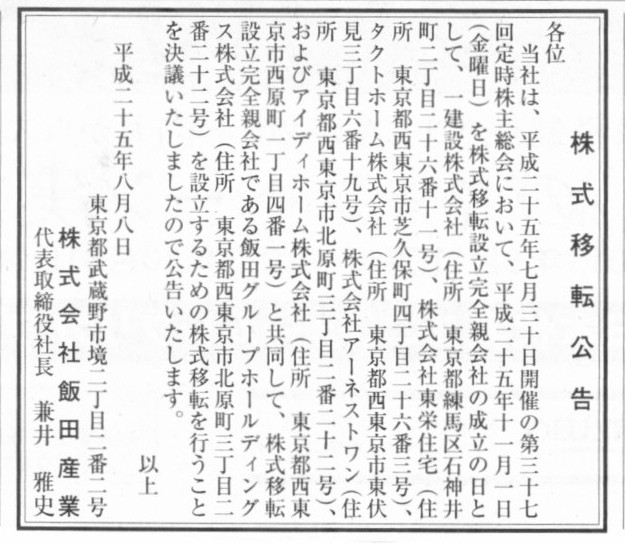 株式移転公告
各位
当社は、平成二十五年七月三十日開催の第三十七
回定時株主総会において、平成二十五年十一月一日
(金曜日)を株式移転設立完全親会社の成立の日と
して、一建設株式会社(住所 東京都練馬区石神井
町二丁目二十六番十一号)、株式会社東栄住宅(住
所 東京都西東京市芝久保町四丁目二十六番三号)、
タクトホーム株式会社(住所 東京都西東京市東伏
見三丁目六番十九号)、株式会社アーネストワン(住
所 東京都西東京市北原町三丁目二番二十二号)、
およびアイディホーム株式会社(住所 東京都西東
京市西原町一丁目四番一号)と共同して、株式移転
設立完全親会社である飯田グループホールディング
ス株式会社(住所 東京都西東京市北原町三丁目二
番二十二号)を設立するための株式移転を行うこと
を決議いたしましたので公告いたします。
以上
平成二十五年八月八日
東京都武蔵野市境二丁目二番二号
株式会社飯田産業
代表取締役社長 兼井 雅史